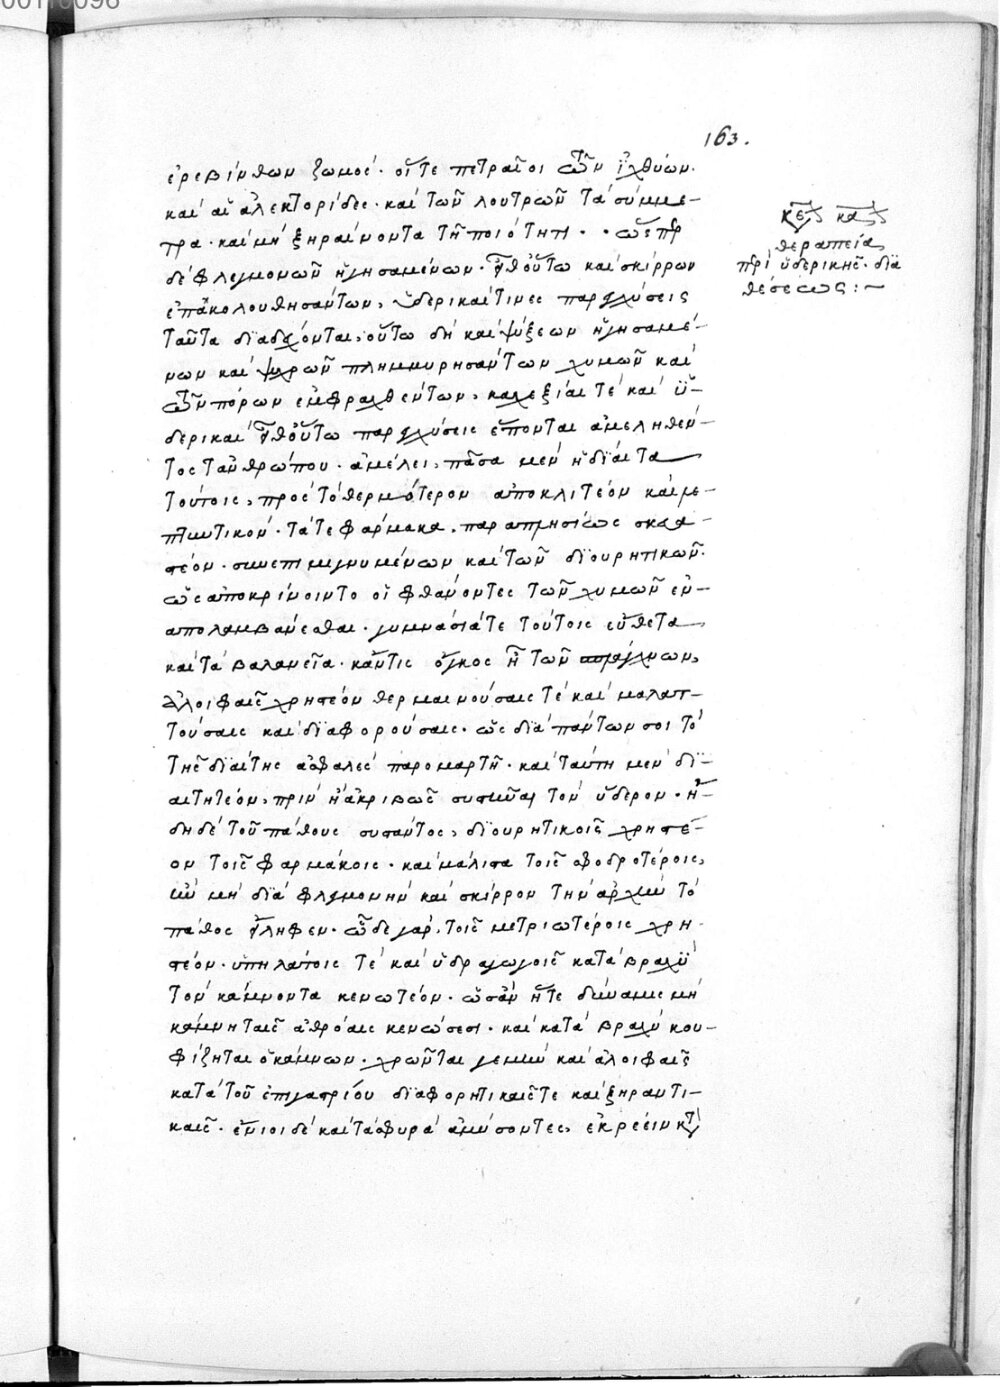 163.
ἐρεβίνθων ζωμός· οἵ τε πετραῖοι τῶν ἰχθύων.
καὶ αἱ ἀλεκτορίδες· καὶ τῶν λουτρῶν τὰ σύμμε-
τρα· καὶ μὴ ξηραίνοντα τῇ ποιότητι·
δὲ φλεγμονῶν ἡγησαμένων· καὶ σκίρρων
ἐπακολουθησάντων, ὑδερικαί τινες
ταῦτα διαδέχονται, οὕτω δὴ καὶ ψύξεων ἡγησαμέ-
νων καὶ ψυχρῶν πλημμυρησάντων χυμῶν καὶ
τῶν πόρων ἐμφραχθέντων, καχεξίαι τὲ καὶ ὑ-
δερικαὶ ἕπονται ἀμεληθέν-
τος τἀνθρώπου· ἀμέλει, πᾶσα μὲν ἡ δίαιτα
τούτοις, πρὸς τὸ θερμότερον ἀποκλιτέον καὶ λε-
πτυντικόν· τά τε φάρμακα, παραπλησίως σκευα-
στέον· συνεπιμιγνυμένων καὶ τῶν διουρητικῶν·
ὡς ἀποκρίνοιντο οἱ φθάνοντες τῶν χυμῶν ἐν-
απολαμβάνεσθαι· γυμνάσιά τε τούτοις εὔθετα
καὶ τὰ βαλανεῖα· κἄν τις ὄγκος ᾖ τῶν σπλάγχνων,
ἀλοιφαῖς χρηστέον θερμαινούσαις τὲ καὶ μαλατ-
τούσαις καὶ διαφορούσαις· ὡς διὰ πάντων σοι τὸ
τῆς διαίτης ἀσφαλὲς παρομαρτῇ· καὶ ταύτῃ μὲν δι-
αιτητέον, πρὶν ἢ ἀκριβῶς συστῆναι τὸν ὕδερον· ἤ-
δη δὲ τοῦ πάθους συστάντος, διουρητικοῖς χρηστέ-
ον τοῖς φαρμάκοις· καὶ μάλιστα τοῖς σφοδροτέροις,
ἢν μὴ διὰ φλεγμονὴν καὶ σκίρρον τὴν ἀρχὴν τὸ
πάθος εἴληφεν· ὧδε γὰρ, τοῖς μετριωτέροις χρη-
στέον· ὑπηλάτοις τὲ καὶ ὑδραγωγοῖς κατὰ βραχὺ
τὸν κάμνοντα κενωτέον· ὡς ἂν ἥ τε δύναμις μὴ
κάμνῃ ταῖς ἀθρόαις κενώσεσι· καὶ κατὰ βραχὺ κου-
φίζηται ὁ κάμνων· χρῶνται γε μὴν καὶ ἀλοιφαῖς
κατὰ τοῦ ἐπιγαστρίου διαφορητικαῖς τε καὶ ξηραντι-
καῖς· ἔνιοι δὲ καὶ τὰ σφυρὰ ἀμύσσοντες, ἐκρέειν κτ
θεραπεία
περὶ ὑδερικῆς· δια
θέσεως:~